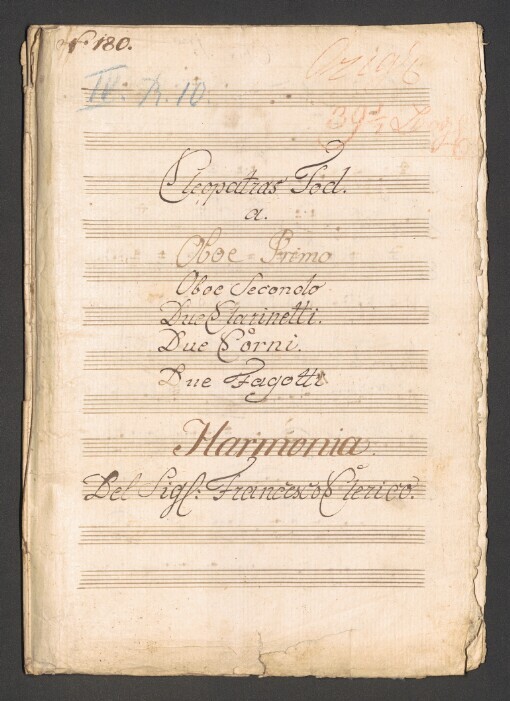 N. 180.
IV. R. 10.
Cleopatras Tod.
a.
Oboe Primo
Oboe Secondo
Due Clarinetti.
Due Corni.
Due Fagotti
Harmonia.
Del Sigl: Francesco Clerico.